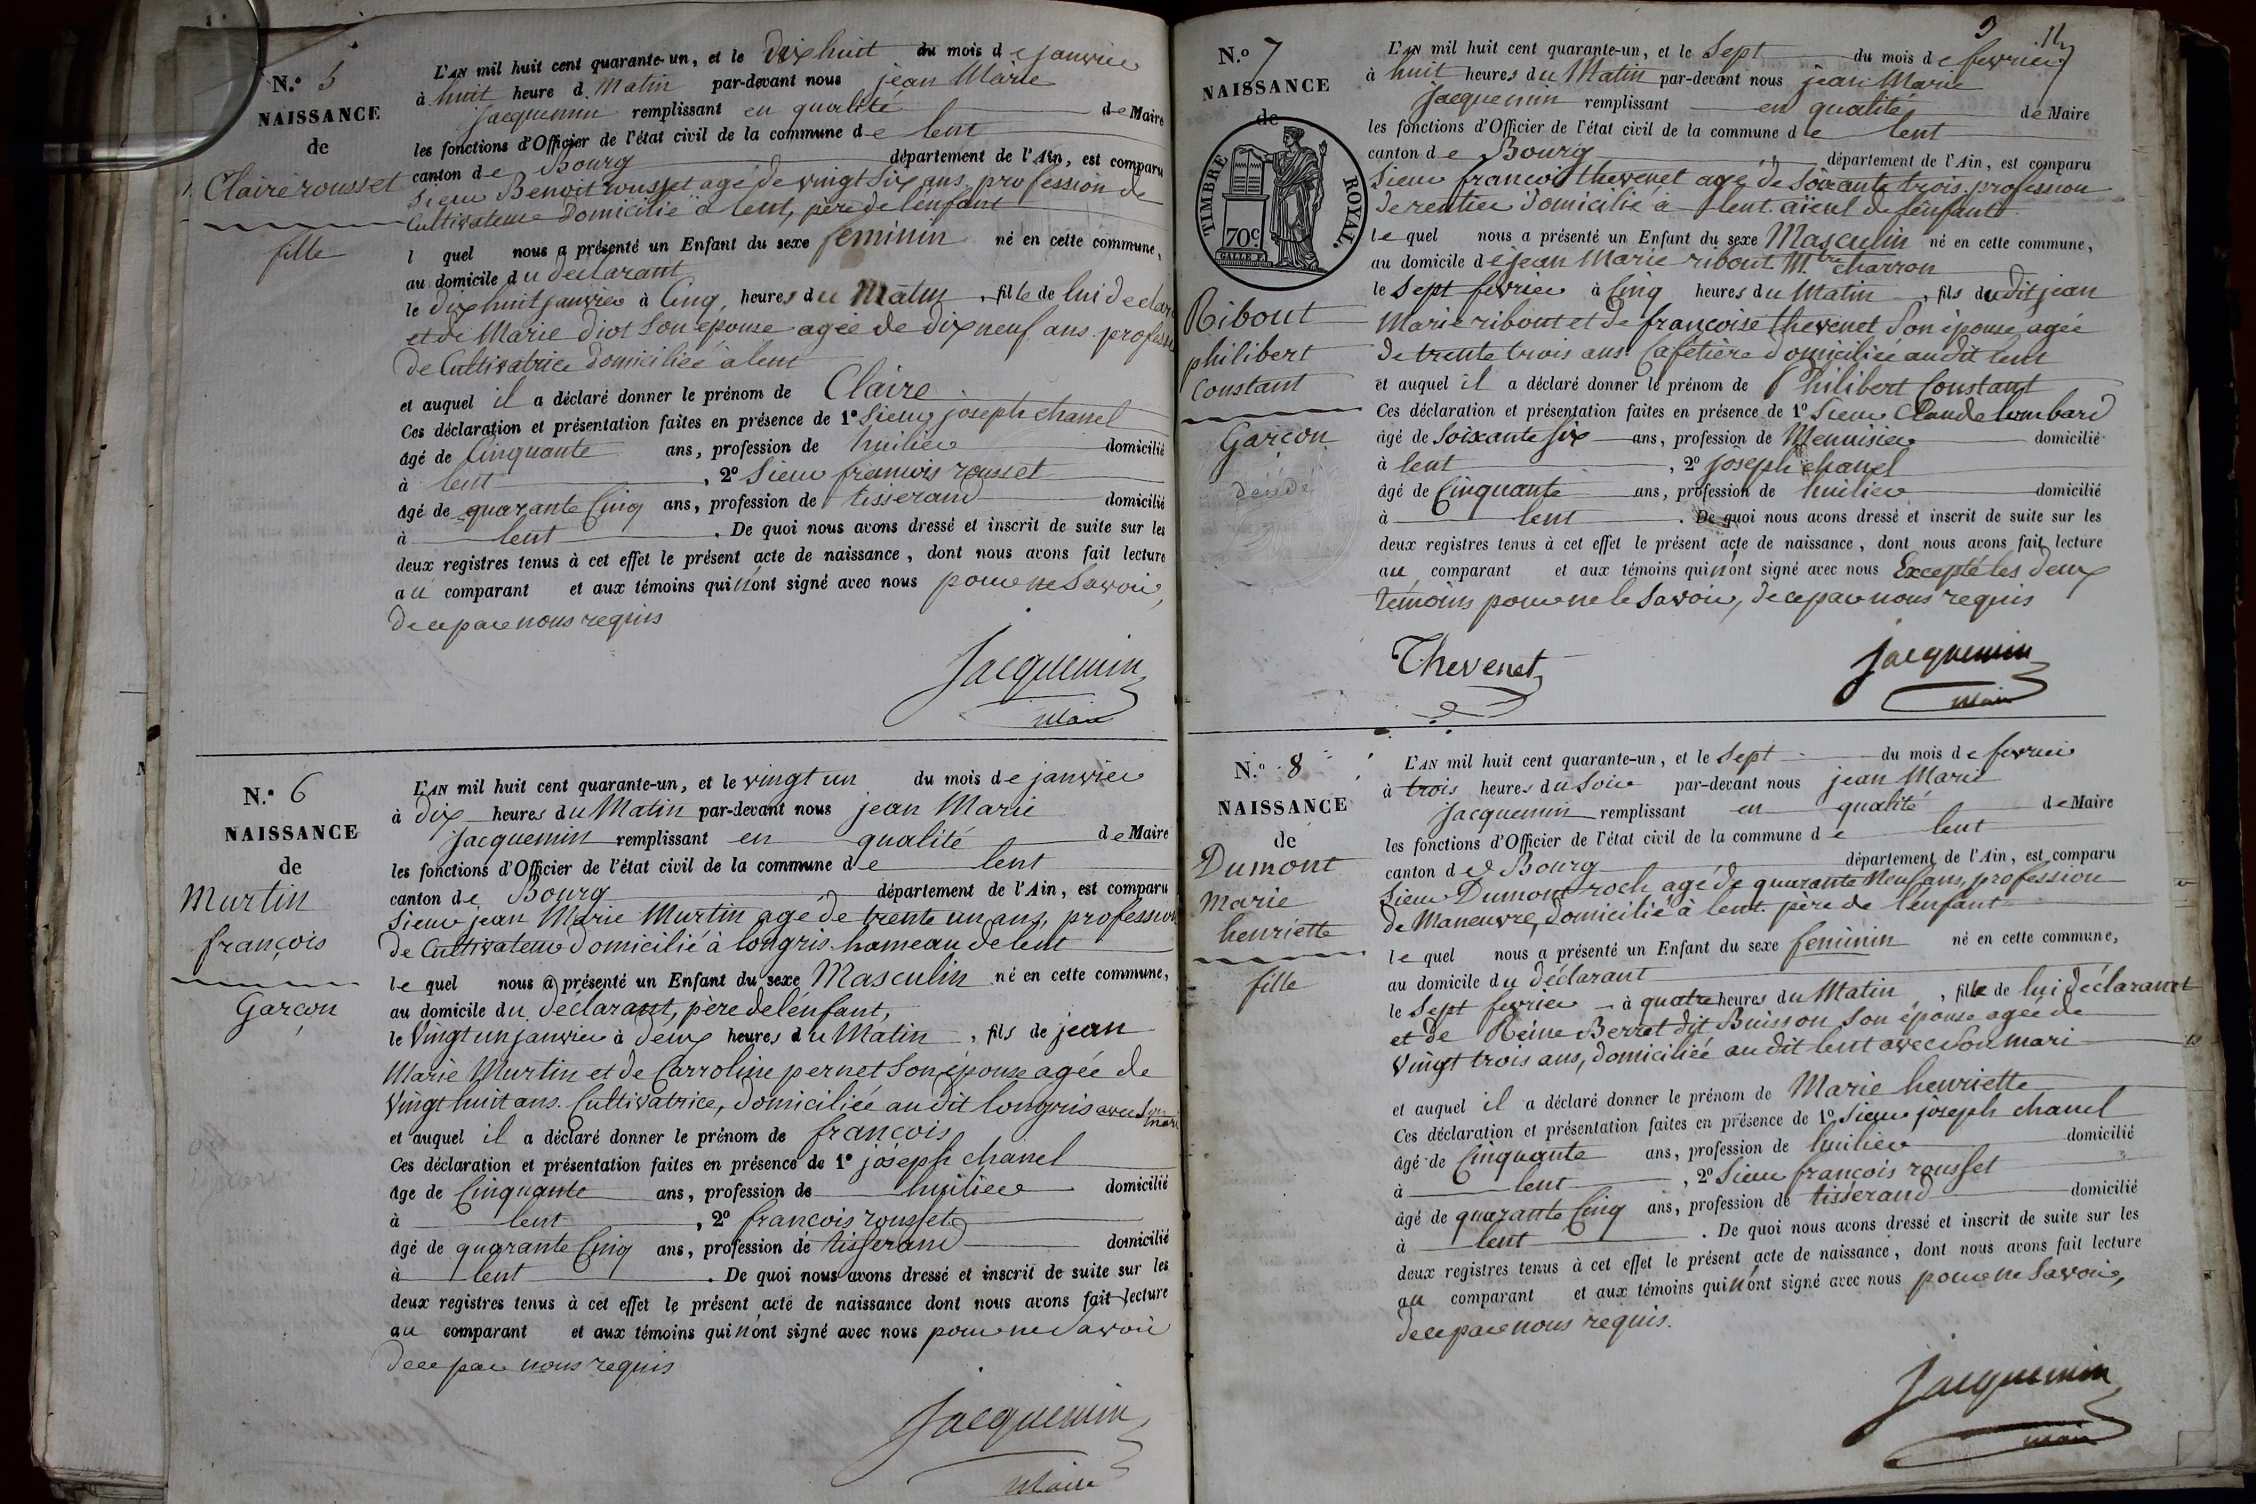 N.º 5
NAISSANCE
de
Claire rousset
fille
L'AN mil huit cent quarante-un, et le dix huit du mois de janvier
à huit heure d. Matin par-devant nous jean Marie
Jacquemin remplissant en qualité de Maire
les fonctions d'Officier de l'état civil de la commune de lent
canton de Bourg département de l'Ain, est comparu
Sieur Benoit rousset agé de vingt Six ans, profession de
Cultivateur Domicilié à lent, père de l'enfant
l quel nous a présenté un Enfant du sexe feminin né en cette commune,
au domicile du déclarant
le dix huit janvier à Cinq heures du Matin, fille de lui declar
et de Marie diot Son épouse agée de dix neuf ans. profession
de Cultivatrice domiciliée à lent
et auquel il a déclaré donner le prénom de Claire
Ces déclaration et présentation faites en présence de 1º Sieur joseph chanel
âgé de Cinquante ans, profession de huilier domicilié
à lent, 2º Sieur francois rousset
âgé de quarante Cinq ans, profession de tisserand domicilié
à lent. De quoi nous avons dressé et inscrit de suite sur les
deux registres tenus à cet effet le présent acte de naissance, dont nous avons fait lecture
au comparant et aux témoins qui n'ont signé avec nous pour ne Savoir,
de ce par nous requis
Jacquemin
Maire
N.º 6
NAISSANCE
de
Murtin
françois
Garçon
L'AN mil huit cent quarante-un, et le vingt un du mois de janvier
à dix heures du Matin par-devant nous jean Marie
Jacquemin remplissant en qualité de Maire
les fonctions d'Officier de l'état civil de la commune de lent
canton de Bourg département de l'Ain, est comparu
Sieur jean Marie Murtin agé de trente un ans, profession
de Cultivateur domicilié à longris hameau de lent
le quel nous a présenté un Enfant du sexe Masculin né en cette commune,
au domicile du déclarant, père de l'énfant,
le Vingt un janvier à deux heures du Matin, fils de jean
Marie Murtin et de Carroline pernet Son épouse agée de
Vingt huit ans. Cultivatrice, domiciliée au dit longris avec Son mari
et auquel il a déclaré donner le prénom de françois
Ces déclaration et présentation faites en présence de 1º joseph chanel
âge de Cinquante ans, profession de huilier domicilié
à lent, 2º francois rousset
âgé de quarante Cinq ans, profession de tisserand domicilié
à lent. De quoi nous avons dressé et inscrit de suite sur les
deux registres tenus à cet effet le présent acte de naissance dont nous avons fait lecture
au comparant et aux témoins qui n'ont signé avec nous pour ne Savoir
de ce par nous requis
Jacquemin
Maire
3
N.º 7
NAISSANCE
de
TIMBRE ROYAL.
70c.
Ribout
philibert
Constant
Garçon
L'AN mil huit cent quarante-un, et le Sept du mois de fevrier
à huit heures du Matin par-devant nous jean Marie
Jacquemin remplissant en qualité de Maire
les fonctions d'Officier de l'état civil de la commune de lent
canton de Bourg département de l'Ain, est comparu
Sieur francois thevenet agé de Soixante trois. profession
de rentier domicilié à lent. aïeul de l'enfant
le quel nous a présenté un Enfant du sexe Masculin né en cette commune,
au domicile de jean Marie ribout Mtre charron
le Sept fevrier à Cinq heures du Matin, fils du dit jean
Marie ribout et de françoise thevenet Son épouse agée
de trente trois ans. Cafétière domiciliée au dit lent
et auquel il a déclaré donner le prénom de Philibert Constant
Ces déclaration et présentation faites en présence de 1º Sieur Claude lombard
âgé de Soixante Six ans, profession de Menuisier domicilié
à lent, 2º joseph chanel
âgé de Cinquante ans, profession de huilier domicilié
à lent. De quoi nous avons dressé et inscrit de suite sur les
deux registres tenus à cet effet le présent acte de naissance, dont nous avons fait lecture
au comparant et aux témoins qui n'ont signé avec nous Excepté les deux
témoins pour ne le Savoir, de ce par nous requis
Thevenet
Jacquemin
Maire
N.º 8
NAISSANCE
de
Dumont
Marie
henriette
fille
L'AN mil huit cent quarante-un, et le Sept du mois de fevrier
à trois heures du Soir par-devant nous jean Marie
Jacquemin remplissant en qualité de Maire
les fonctions d'Officier de l'état civil de la commune de lent
canton de Bourg département de l'Ain, est comparu
Sieur Dumont roch agé de quarante Neuf ans, profession
de Maneuvre, domicilié à lent. père de l'énfant
le quel nous a présenté un Enfant du sexe feminin né en cette commune,
au domicile du déclarant
le Sept fevrier à quatre heures du Matin, fille de lui déclarant
et de Reine Berret dit Buisson Son épouse agée de
Vingt trois ans, domiciliée au dit lent avec Son mari
et auquel il a déclaré donner le prénom de Marie henriette
Ces déclaration et présentation faites en présence de 1º Sieur joseph chanel
âgé de Cinquante ans, profession de huilier domicilié
à lent, 2º Sieur françois rousset
âgé de quarante Cinq ans, profession de tisserand domicilié
à lent. De quoi nous avons dressé et inscrit de suite sur les
deux registres tenus à cet effet le présent acte de naissance, dont nous avons fait lecture
au comparant et aux témoins qui n'ont signé avec nous pour ne Savoir,
de ce par nous requis.
Jacquemin
Maire